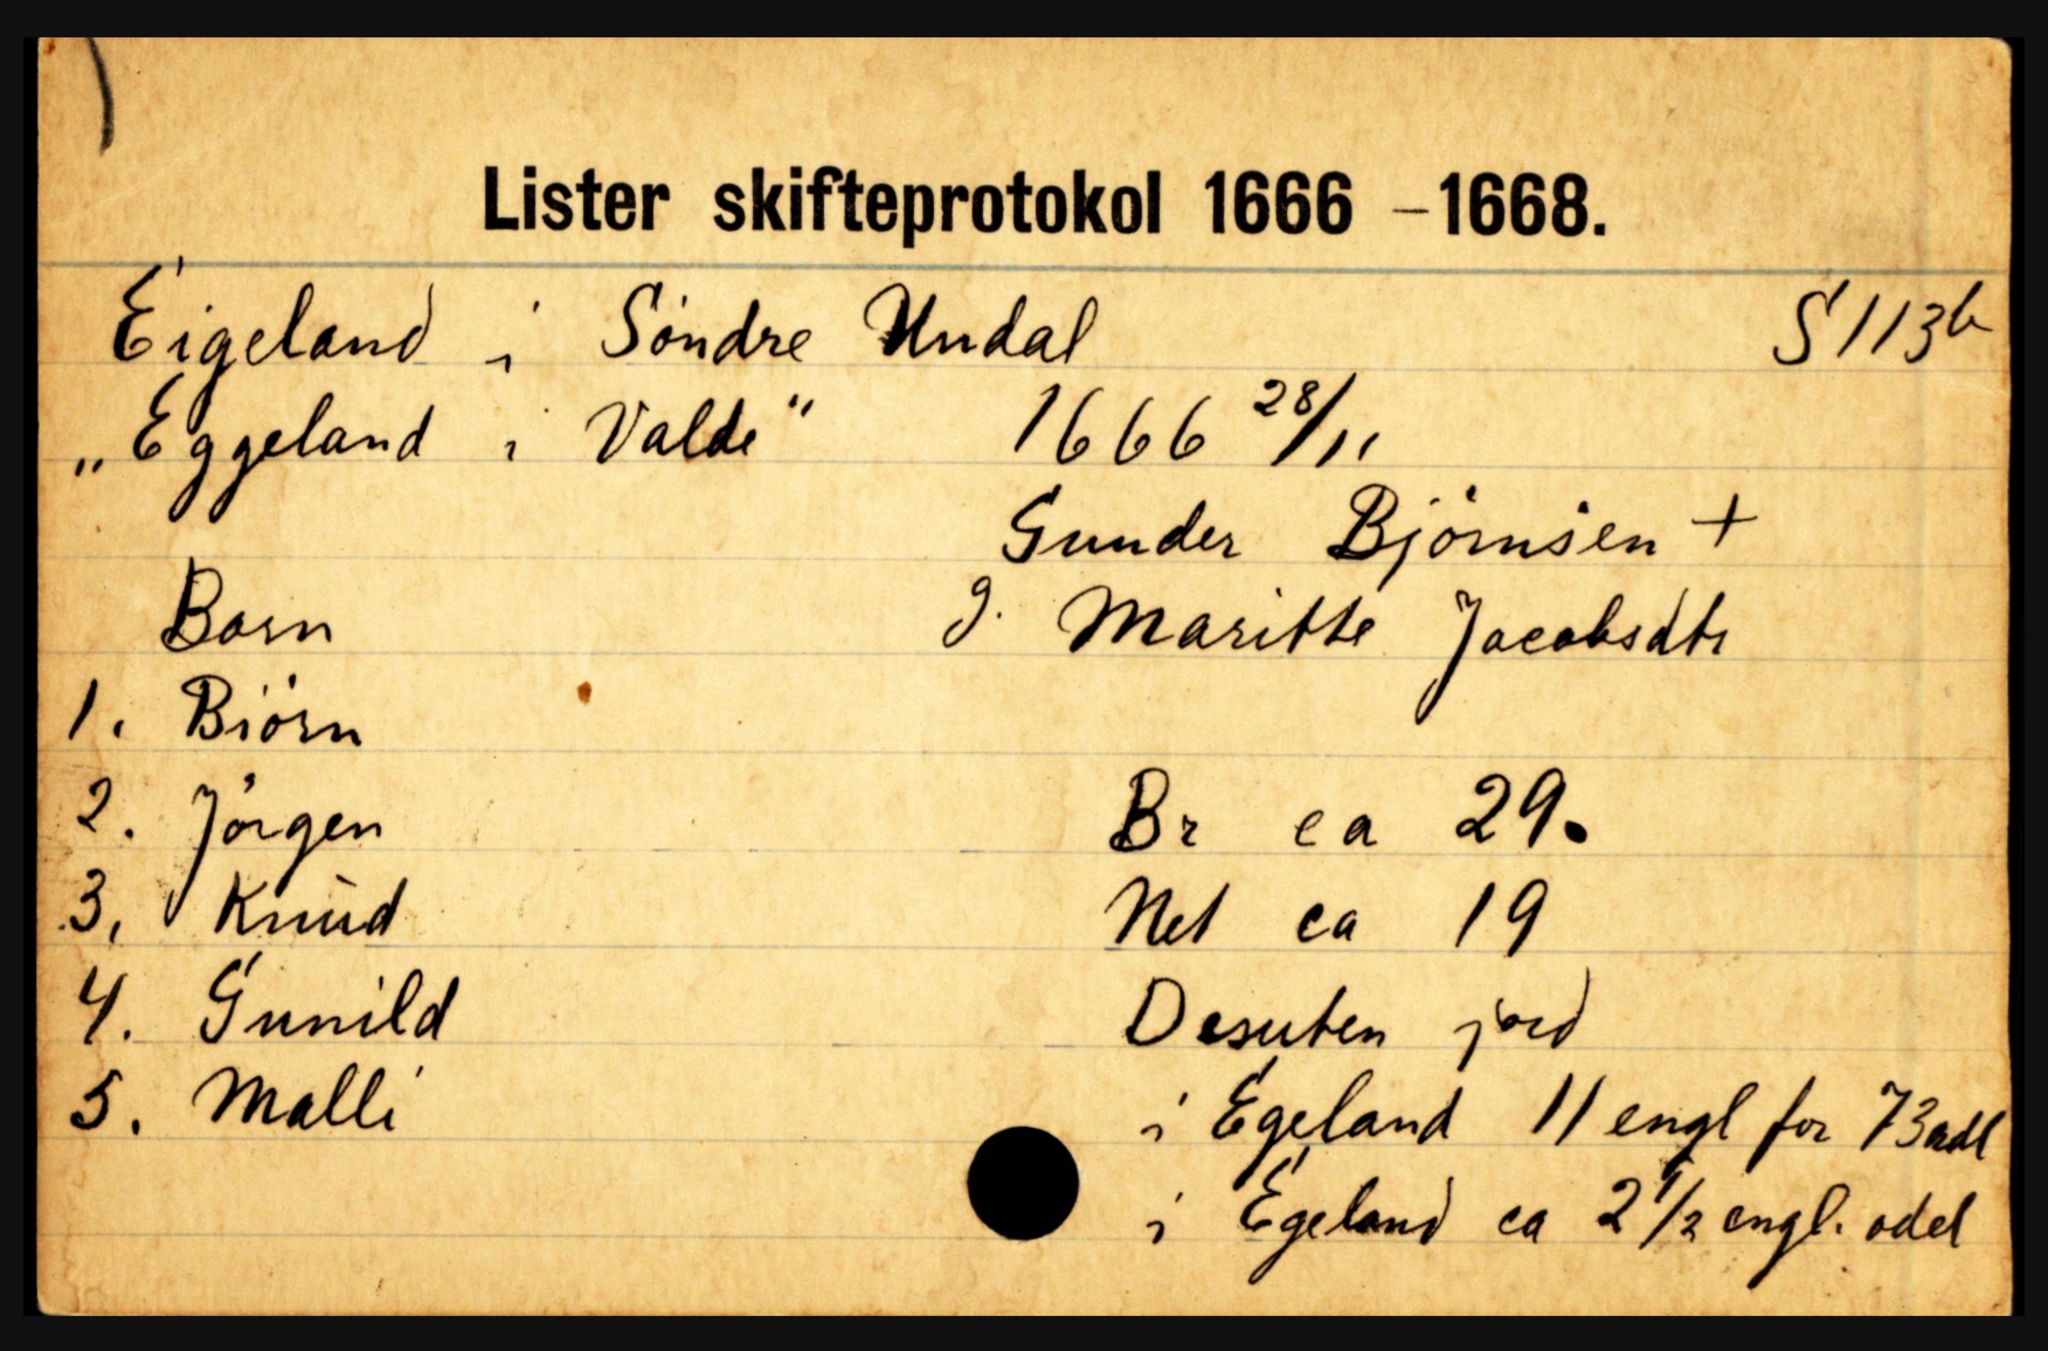 Lister skifteprotokol 1666 – 1668.
Eigeland i Söndre Undal S 113b
„Eggeland i Valde" 1666 28/11
Gunder Björnsen +
Barn g. Maritte Jacobsdtr
1. Biörn
2. Jörgen Br ca 29.
3. Knud Net ca 19
4. Gunild Desuten jord
5. Malli i Egeland 11 engl for 73 rdl
i Egeland ca 2 1/2 engl. odel